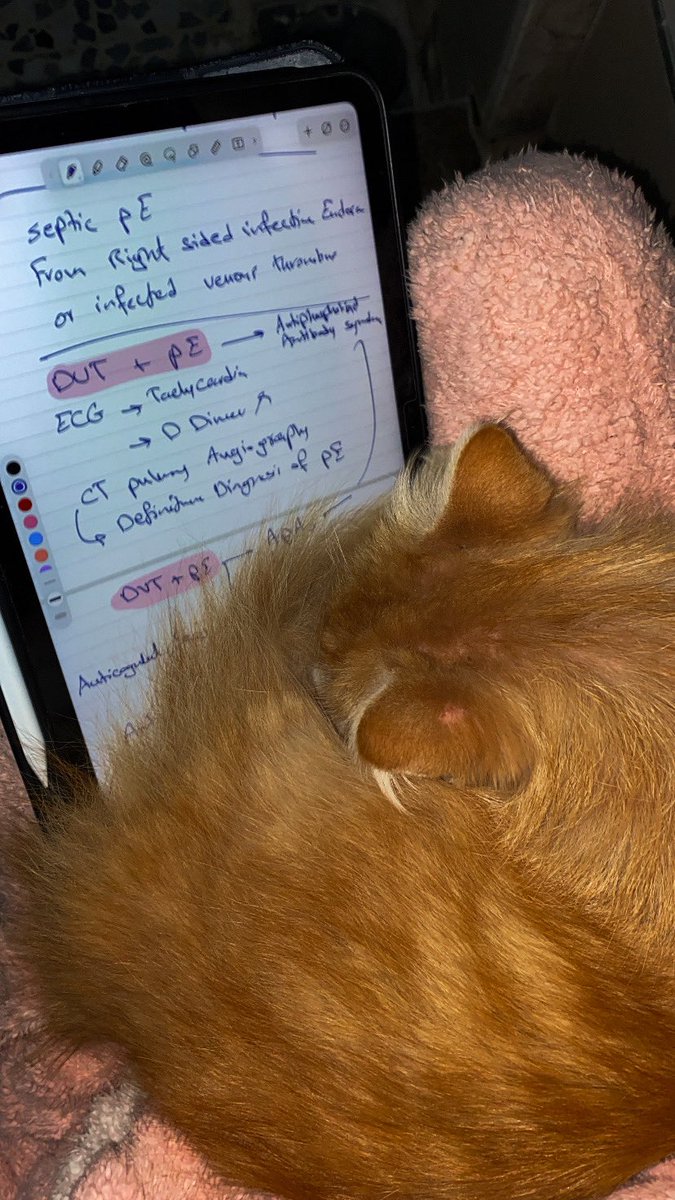 septic pE
From Right sided infective Endo
or infected venous thrombus
DVT + PE → Antiphospholipid
Antibody syndrom
ECG → Tachycardia
→ D Dimer ↑
CT pulmonary Angiography
Definitive Diagnosis of pE
DVT + PE